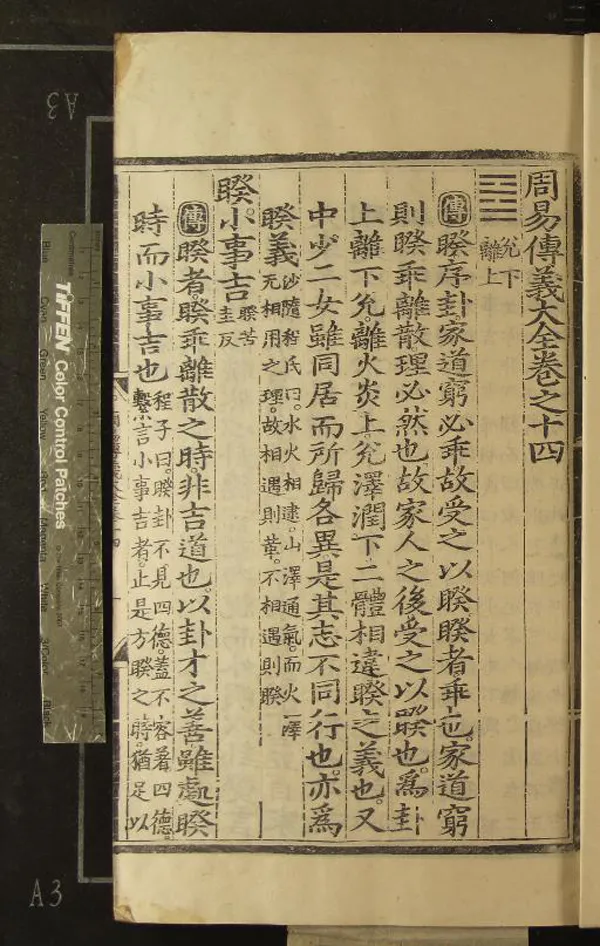 周易傳義大全卷之十四
兌下
離上
傳睽序卦家道窮必乖故受之以睽睽者乖也家道窮
則睽乖離散理必然也故家人之後受之以睽也爲卦
上離下兌離火炎上兌澤潤下二體相違睽之義也又
中少二女雖同居而所歸各異是其志不同行也亦爲
睽義
沙隨程氏曰水火相逮山澤通氣而火澤
无相用之理故相遇則革不相遇則睽
睽小事吉
睽苦
圭反
傳睽者睽乖離散之時非吉道也以卦才之善雖處睽
時而小事吉也
程子曰睽卦不見四德蓋不容着四德
繫言小事吉者止是方睽之時猶足以
A3
A3
TIFFEN Color Control Patches
Centimetres
Blue
Cyan
Green
Yellow
Red
Magenta
White
3/Color
Black